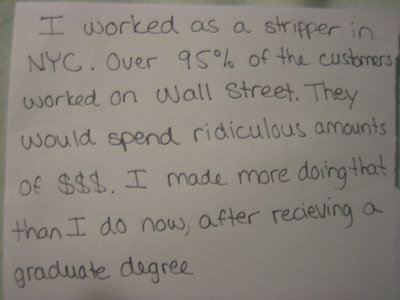 I worked as a stripper in
NYC. Over 95% of the customers
worked on Wall Street. They
would spend ridiculous amounts
of $$$. I made more doing that
than I do now, after recieving a
graduate degree